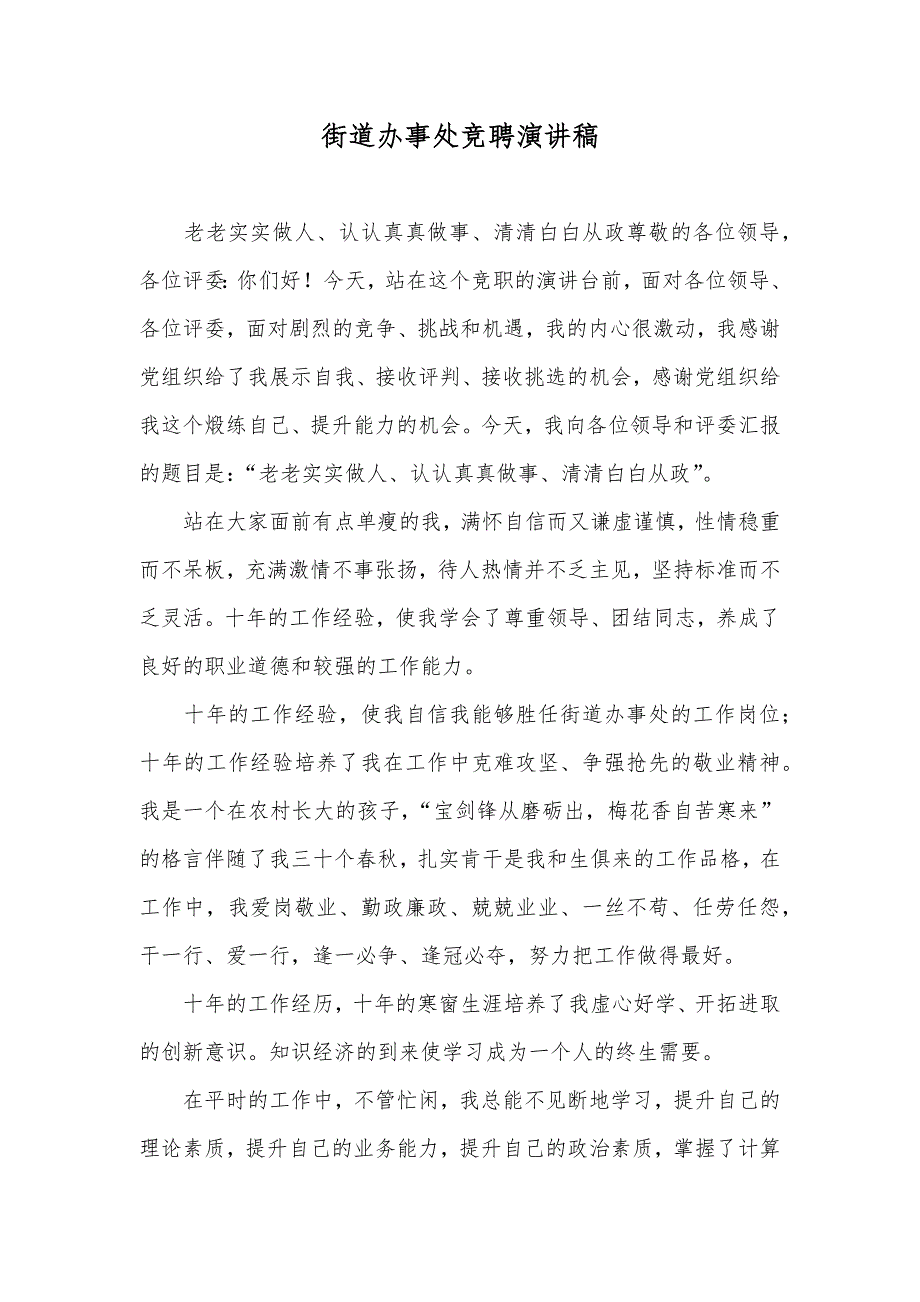 街道办事处竞聘演讲稿
老老实实做人、认认真真做事、清清白白从政尊敬的各位领导，
各位评委：你们好！今天，站在这个竞职的演讲台前，面对各位领导、
各位评委，面对剧烈的竞争、挑战和机遇，我的内心很激动，我感谢
党组织给了我展示自我、接收评判、接收挑选的机会，感谢党组织给
我这个煅练自己、提升能力的机会。今天，我向各位领导和评委汇报
的题目是：“老老实实做人、认认真真做事、清清白白从政”。
站在大家面前有点单瘦的我，满怀自信而又谦虚谨慎，性情稳重
而不呆板，充满激情不事张扬，待人热情并不乏主见，坚持标准而不
乏灵活。十年的工作经验，使我学会了尊重领导、团结同志，养成了
良好的职业道德和较强的工作能力。
十年的工作经验，使我自信我能够胜任街道办事处的工作岗位；
十年的工作经验培养了我在工作中克难攻坚、争强抢先的敬业精神。
我是一个在农村长大的孩子，“宝剑锋从磨砺出，梅花香自苦寒来”
的格言伴随了我三十个春秋，扎实肯干是我和生俱来的工作品格，在
工作中，我爱岗敬业、勤政廉政、兢兢业业、一丝不苟、任劳任怨，
干一行、爱一行，逢一必争、逢冠必夺，努力把工作做得最好。
十年的工作经历，十年的寒窗生涯培养了我虚心好学、开拓进取
的创新意识。知识经济的到来使学习成为一个人的终生需要。
在平时的工作中，不管忙闲，我总能不见断地学习，提升自己的
理论素质，提升自己的业务能力，提升自己的政治素质，掌握了计算